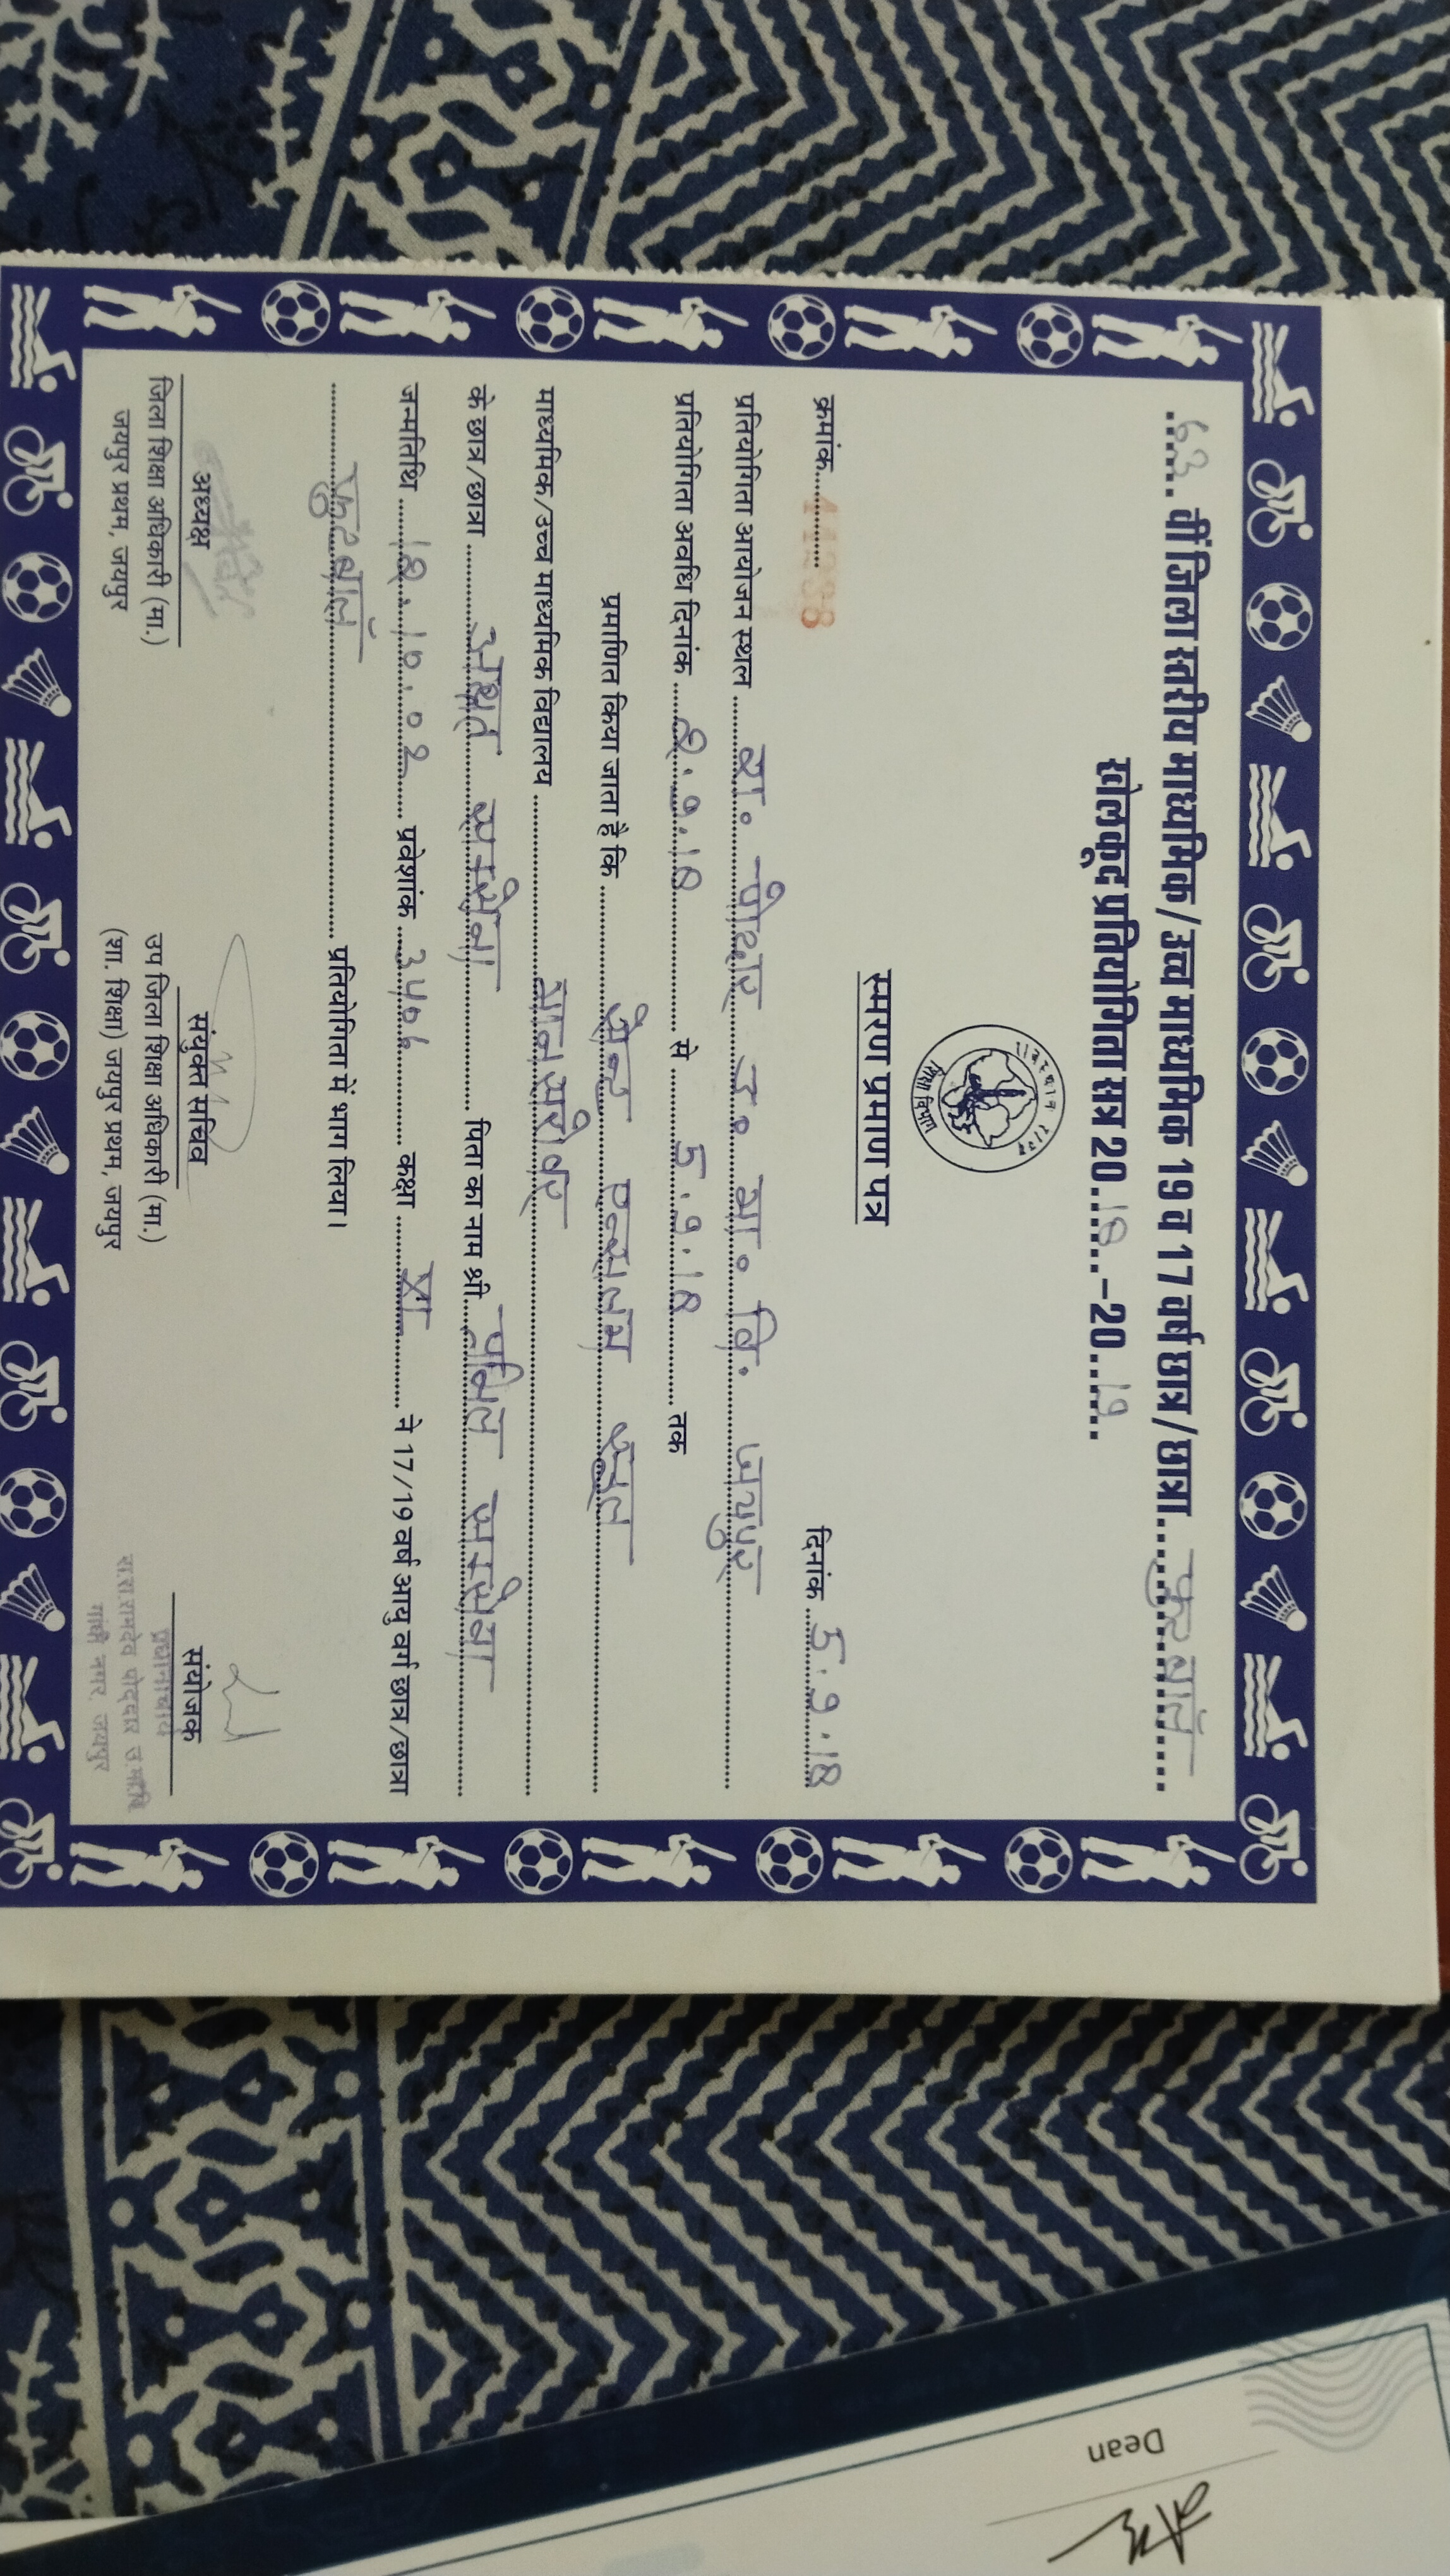 63 वीं जिला स्तरीय माध्यमिक/उच्च माध्यमिक 19 व 17 वर्ष छात्र/छात्रा फुटबालॅ
खेलकूद प्रतियोगिता सत्र 2018-2019
राजस्थान राज्य
शिक्षा विभाग
स्मरण प्रमाण पत्र
क्रमांक
दिनांक 5.9.18
प्रतियोगिता आयोजन स्थल रा० पोदार उ० मा० वि. जयपुर
प्रतियोगिता अवधि दिनांक 2.9.18 से 5.9.18 तक
प्रमाणित किया जाता है कि सेन्ट एन्सलम स्कूल
माध्यमिक/उच्च माध्यमिक विद्यालय मानसरोवर
के छात्र/छात्रा अक्षत सक्सेना पिता का नाम श्री सक्सेना
जन्मतिथि 12.10.02 प्रवेशांक 3406 कक्षा XI ने 17/19 वर्ष आयु वर्ग छात्र/छात्रा
फुटबालॅ प्रतियोगिता में भाग लिया।
अध्यक्ष
जिला शिक्षा अधिकारी (मा.)
जयपुर प्रथम, जयपुर
संयुक्त सचिव
उप जिला शिक्षा अधिकारी (मा.)
(शा. शिक्षा) जयपुर प्रथम, जयपुर
संयोजक
प्रधानाचार्य
रा.रा.रामदेव पोद्दार उ.मा.वि.
गांधी नगर, जयपुर
Dean